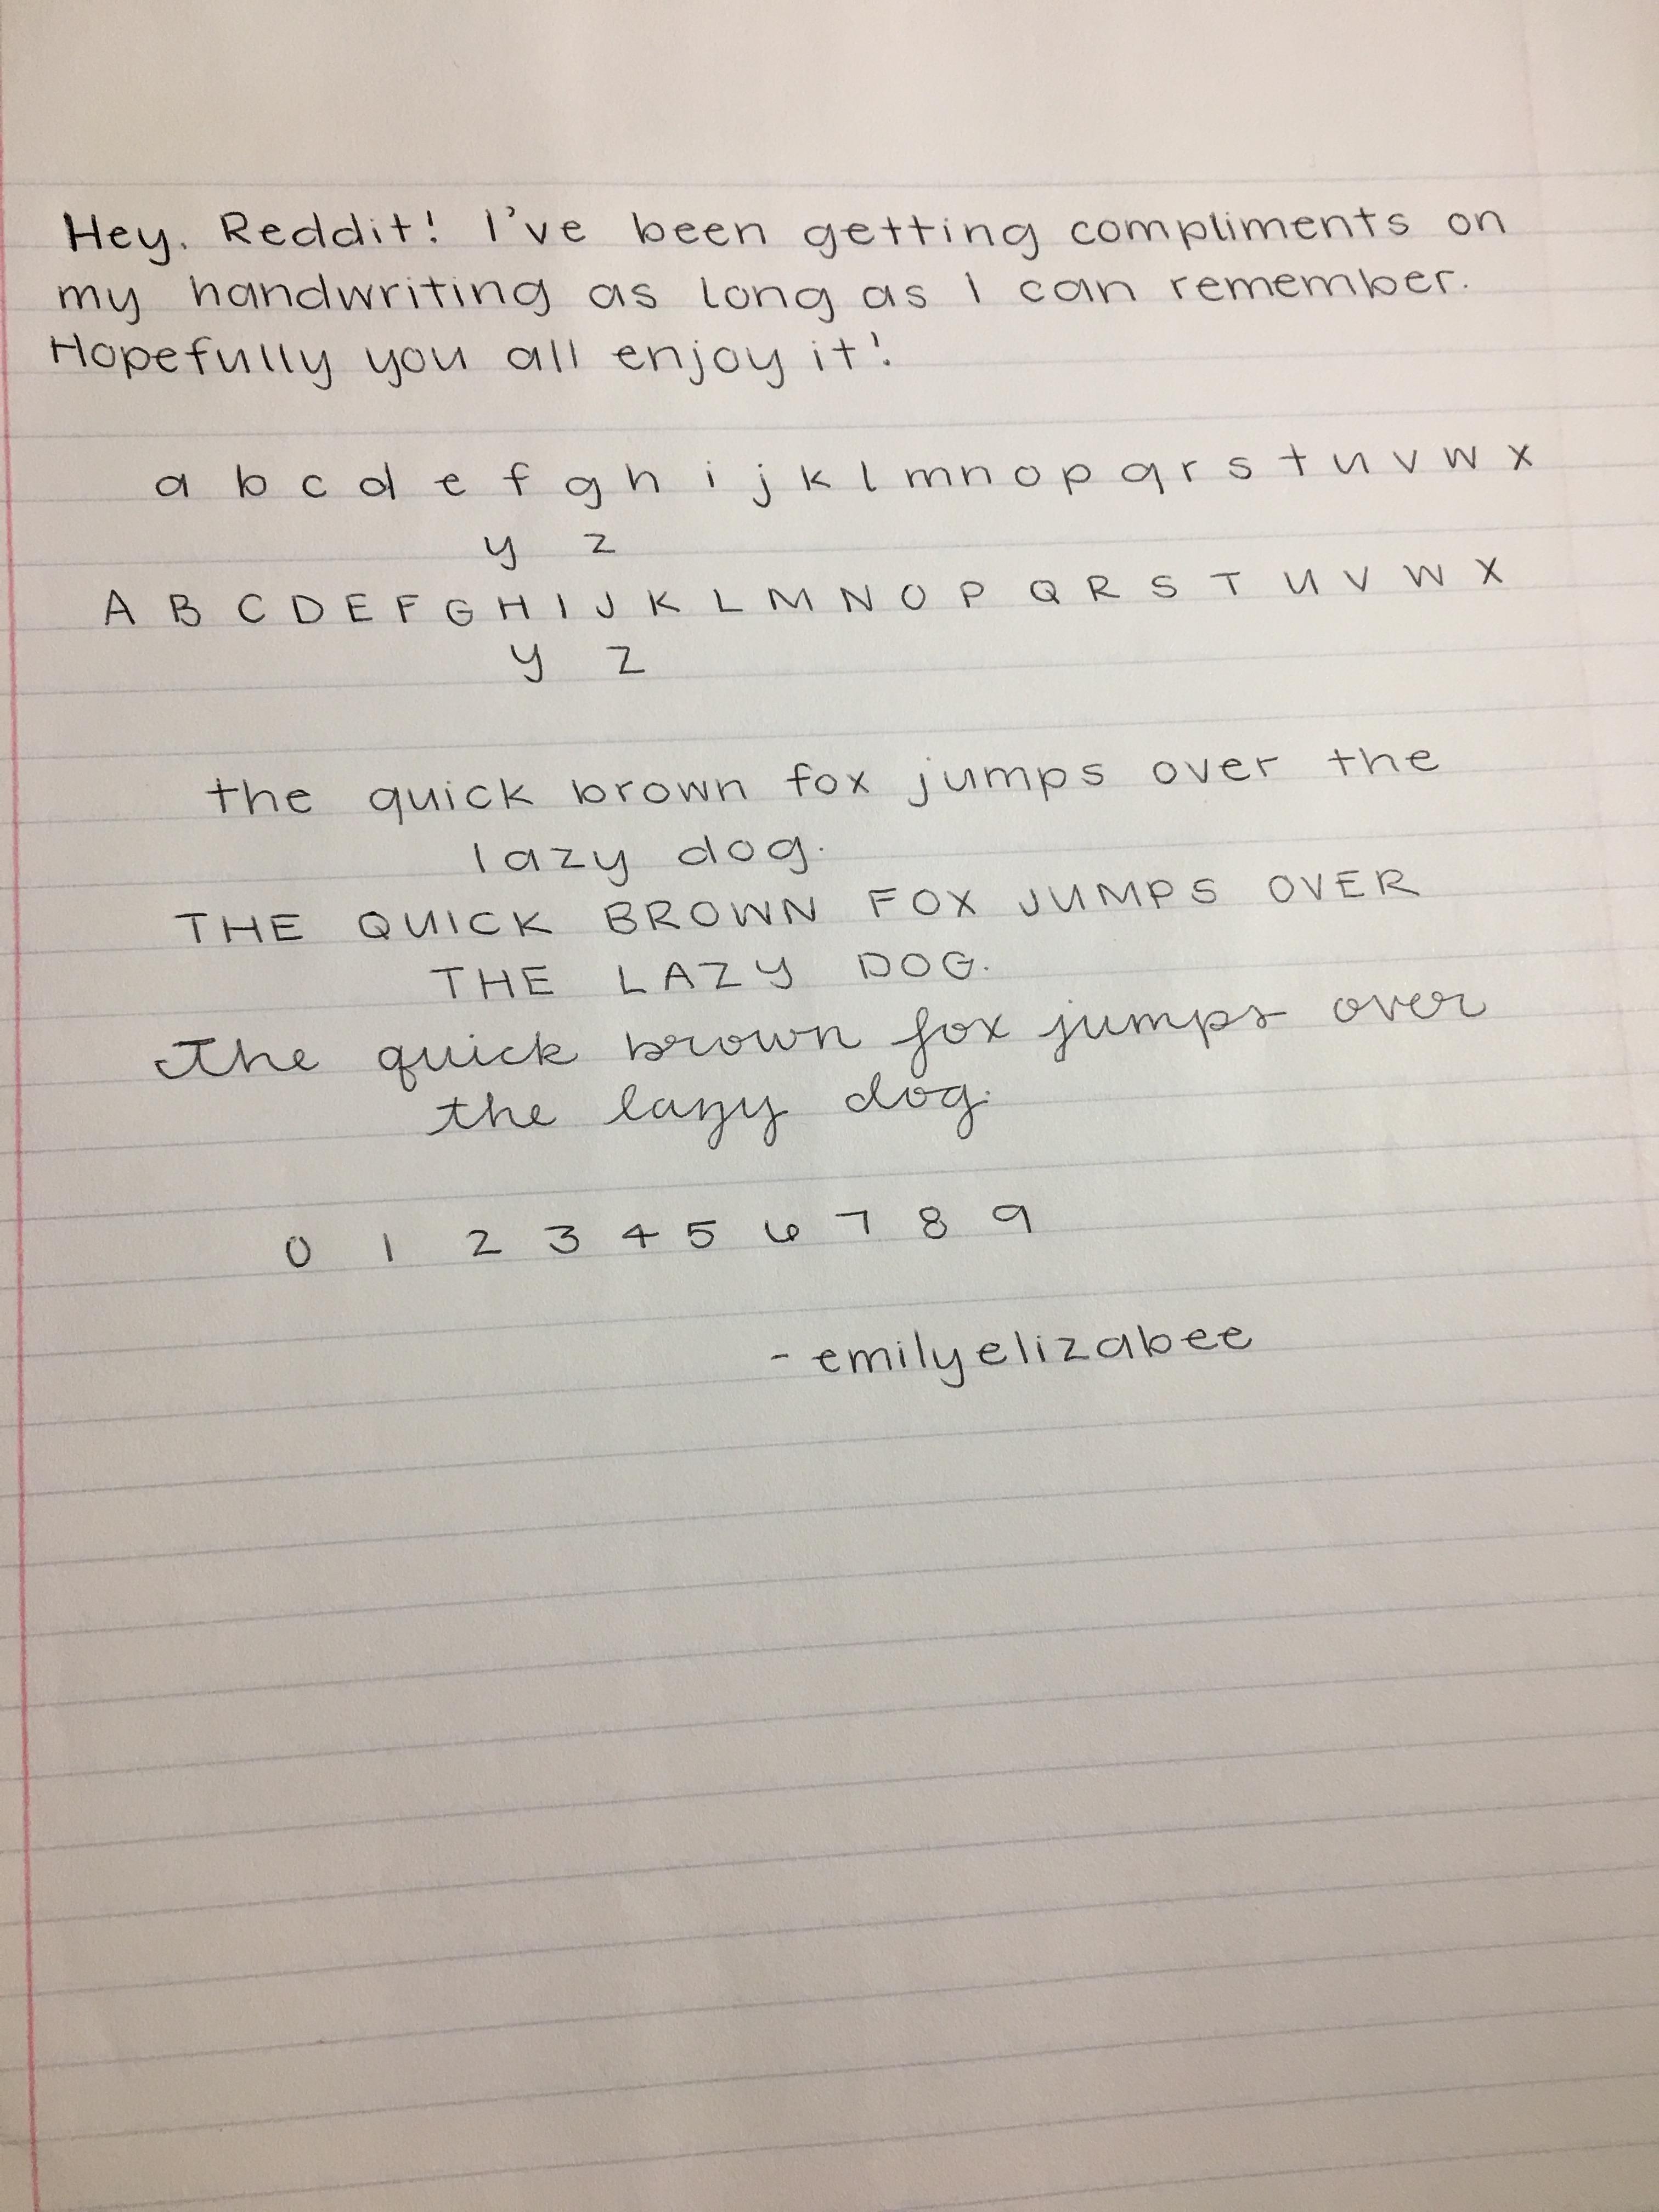 Hey, Reddit! I've been getting compliments on
my handwriting as long as I can remember.
Hopefully you all enjoy it!
a b c d e f g h i j k l m n o p q r s t u v w x
y z
A B C D E F G H I J K L M N O P Q R S T U V W X
Y Z
the quick brown fox jumps over the
lazy dog.
THE QUICK BROWN FOX JUMPS OVER
THE LAZY DOG.
The quick brown fox jumps over
the lazy dog.
0 1 2 3 4 5 6 7 8 9
- emilyelizabee